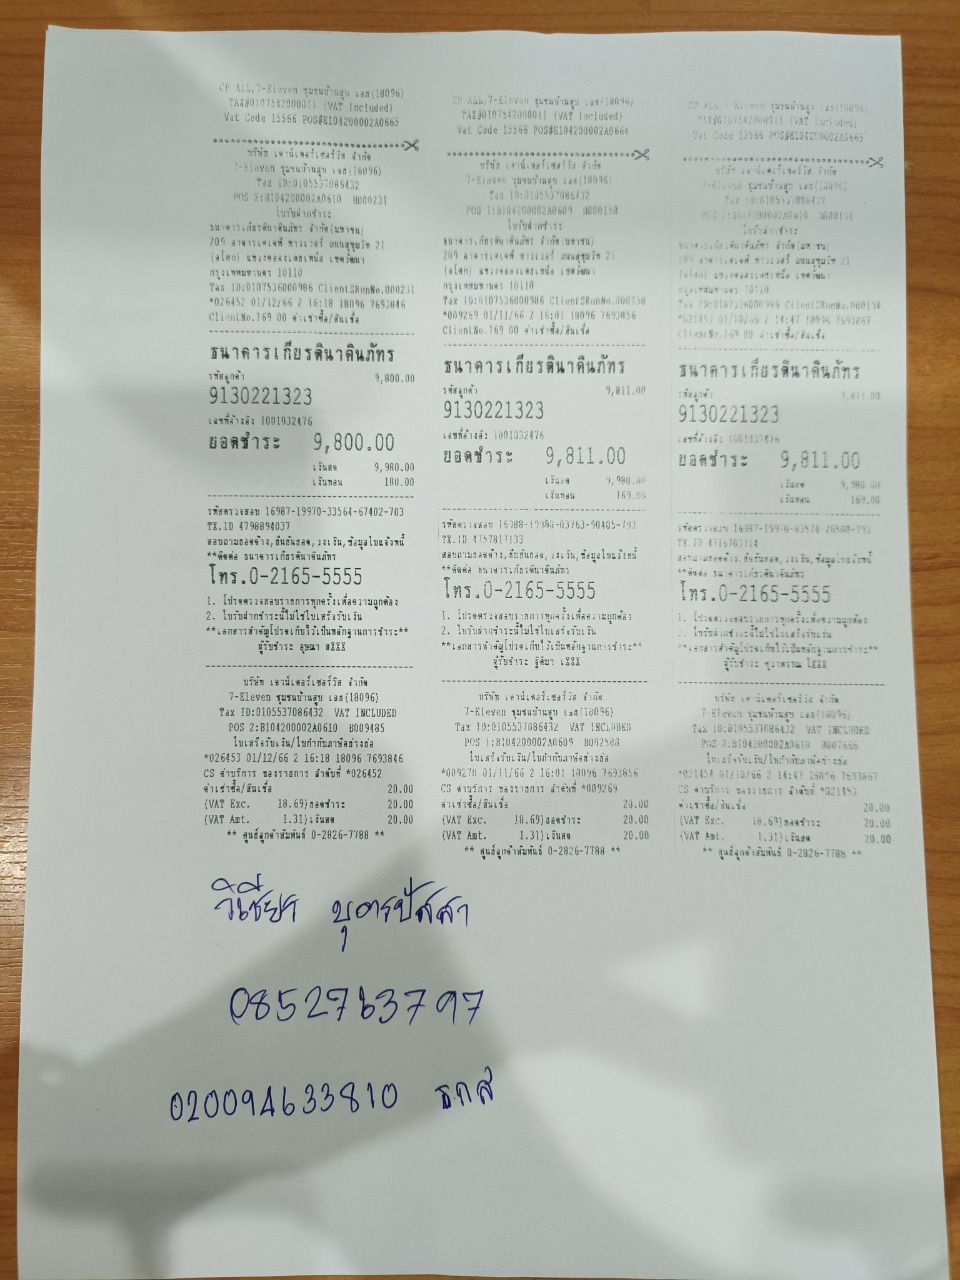 CP ALL,7-Eleven ชุมชนบ้านสูบ เลย(18096)
TAX#0107542000011 (VAT Included)
Vat Code 15566 POS#E104200002A0665
บริษัท เคาน์เตอร์เซอร์วิส จำกัด
7-Eleven ชุมชนบ้านสูบ เลย(18096)
Tax ID:0105537086432
POS 2:B104200002A0610 N000231
ใบรับฝากชำระ
ธนาคารเกียรตินาคินภัทร จำกัด(มหาชน)
209 อาคารเคเคพี ทาวเวอร์ ถนนสุขุมวิท 21
(อโศก) แขวงคลองเตยเหนือ เขตวัฒนา
กรุงเทพมหานคร 10110
Tax ID:0107536000986 ClientSRunNo.000231
*026452 01/12/66 2 16:18 18096 7693846
ClientNo.169 00 ค่าเช่าซื้อ/สินเชื่อ
ธนาคารเกียรตินาคินภัทร
รหัสลูกค้า 9,800.00
9130221323
เลขที่อ้างอิง 1001032476
ยอดชำระ 9,800.00
เงินสด 9,980.00
เงินทอน 180.00
รหัสตรวจสอบ 16987-19970-33564-67402-703
TX.ID 4798894037
สอบถามยอดค้าง,สิ้นยันยอด,วงเงิน,ข้อมูลใบแจ้งหนี้
**ติดต่อ ธนาคารเกียรตินาคินภัทร
โทร.0-2165-5555
1. โปรดตรวจสอบรายการทุกครั้งเพื่อความถูกต้อง
2. ใบรับฝากชำระนี้ไม่ใช่ใบเสร็จรับเงิน
**เอกสารสำคัญโปรดเก็บไว้เป็นหลักฐานการชำระ**
ผู้รับชำระ อุษณา สXXX
บริษัท เคาน์เตอร์เซอร์วิส จำกัด
7-Eleven ชุมชนบ้านสูบ เลย(18096)
Tax ID:0105537086432 VAT INCLUDED
POS 2:B104200002A0610 B009485
ใบเสร็จรับเงิน/ใบกำกับภาษีอย่างย่อ
*026453 01/12/66 2 16:18 18096 7693846
CS ค่าบริการ ของรายการ ลำดับที่ *026452
ค่าเช่าซื้อ/สินเชื่อ 20.00
(VAT Exc. 18.69)ยอดชำระ 20.00
(VAT Amt. 1.31)เงินสด 20.00
** ศูนย์ลูกค้าสัมพันธ์ 0-2826-7788 **
CP ALL,7-Eleven ชุมชนบ้านสูบ เลย(18096)
TAX#0107542000011 (VAT Included)
Vat Code 15566 POS#E104200002A0664
บริษัท เคาน์เตอร์เซอร์วิส จำกัด
7-Eleven ชุมชนบ้านสูบ เลย(18096)
Tax ID:0105537086432
POS 1:B104200002A0609 N000158
ใบรับฝากชำระ
ธนาคารเกียรตินาคินภัทร จำกัด(มหาชน)
209 อาคารเคเคพี ทาวเวอร์ ถนนสุขุมวิท 21
(อโศก) แขวงคลองเตยเหนือ เขตวัฒนา
กรุงเทพมหานคร 10110
Tax ID:0107536000986 ClientSRunNo.000158
*009269 01/11/66 2 16:01 18096 7693856
ClientNo.169 00 ค่าเช่าซื้อ/สินเชื่อ
ธนาคารเกียรตินาคินภัทร
รหัสลูกค้า 9,811.00
9130221323
เลขที่อ้างอิง 1001032476
ยอดชำระ 9,811.00
เงินสด 9,980.00
เงินทอน 169.00
รหัสตรวจสอบ
TX.ID 4757817133
**ติดต่อ ธนาคารเกียรตินาคินภัทร
โทร.0-2165-5555
1. โปรดตรวจสอบรายการทุกครั้งเพื่อความถูกต้อง
2. ใบรับฝากชำระนี้ไม่ใช่ใบเสร็จรับเงิน
**เอกสารสำคัญโปรดเก็บไว้เป็นหลักฐานการชำระ**
ผู้รับชำระ ฐิติมา เXXX
บริษัท เคาน์เตอร์เซอร์วิส จำกัด
7-Eleven ชุมชนบ้านสูบ เลย(18096)
Tax ID:0105537086432 VAT INCLUDED
POS 1:B104200002A0609
ใบเสร็จรับเงิน/ใบกำกับภาษีอย่างย่อ
*009270 01/11/66 2 16:01 18096 7693856
CS ค่าบริการ ของรายการ ลำดับที่ *009269
ค่าเช่าซื้อ/สินเชื่อ 20.00
(VAT Exc. 18.69)ยอดชำระ 20.00
(VAT Amt. 1.31)เงินสด 20.00
** ศูนย์ลูกค้าสัมพันธ์ 0-2826-7788 **
CP ALL,7-Eleven ชุมชนบ้านสูบ เลย(18096)
TAX#0107542000011 (VAT Included)
Vat Code 15566 POS#E104200002A0665
บริษัท เคาน์เตอร์เซอร์วิส จำกัด
7-Eleven ชุมชนบ้านสูบ เลย(18096)
Tax ID:0105537086432
POS 2:B104200002A0610
ใบรับฝากชำระ
ธนาคารเกียรตินาคินภัทร จำกัด(มหาชน)
209 อาคารเคเคพี ทาวเวอร์ ถนนสุขุมวิท 21
(อโศก) แขวงคลองเตยเหนือ เขตวัฒนา
กรุงเทพมหานคร 10110
Tax ID:0107536000986
*021453 01/10/66 2 14:47 18096 7693867
ClientNo.169 00 ค่าเช่าซื้อ/สินเชื่อ
ธนาคารเกียรตินาคินภัทร
รหัสลูกค้า 9,811.00
9130221323
เลขที่อ้างอิง 1001032476
ยอดชำระ 9,811.00
เงินสด 9,980.00
เงินทอน 169.00
รหัสตรวจสอบ
**ติดต่อ ธนาคารเกียรตินาคินภัทร
โทร.0-2165-5555
1. โปรดตรวจสอบรายการทุกครั้งเพื่อความถูกต้อง
2. ใบรับฝากชำระนี้ไม่ใช่ใบเสร็จรับเงิน
**เอกสารสำคัญโปรดเก็บไว้เป็นหลักฐานการชำระ**
ผู้รับชำระ
บริษัท เคาน์เตอร์เซอร์วิส จำกัด
7-Eleven ชุมชนบ้านสูบ เลย(18096)
Tax ID:0105537086432 VAT INCLUDED
POS 2:B104200002A0610
ใบเสร็จรับเงิน/ใบกำกับภาษีอย่างย่อ
*021454 01/10/66 2 14:47 18096 7693867
CS ค่าบริการ ของรายการ ลำดับที่ *021453
ค่าเช่าซื้อ/สินเชื่อ 20.00
(VAT Exc. 18.69)ยอดชำระ 20.00
(VAT Amt. 1.31)เงินสด 20.00
** ศูนย์ลูกค้าสัมพันธ์ 0-2826-7788 **
วิเชียร บุตรปัสสา
0852763797
020094633810 ธกส